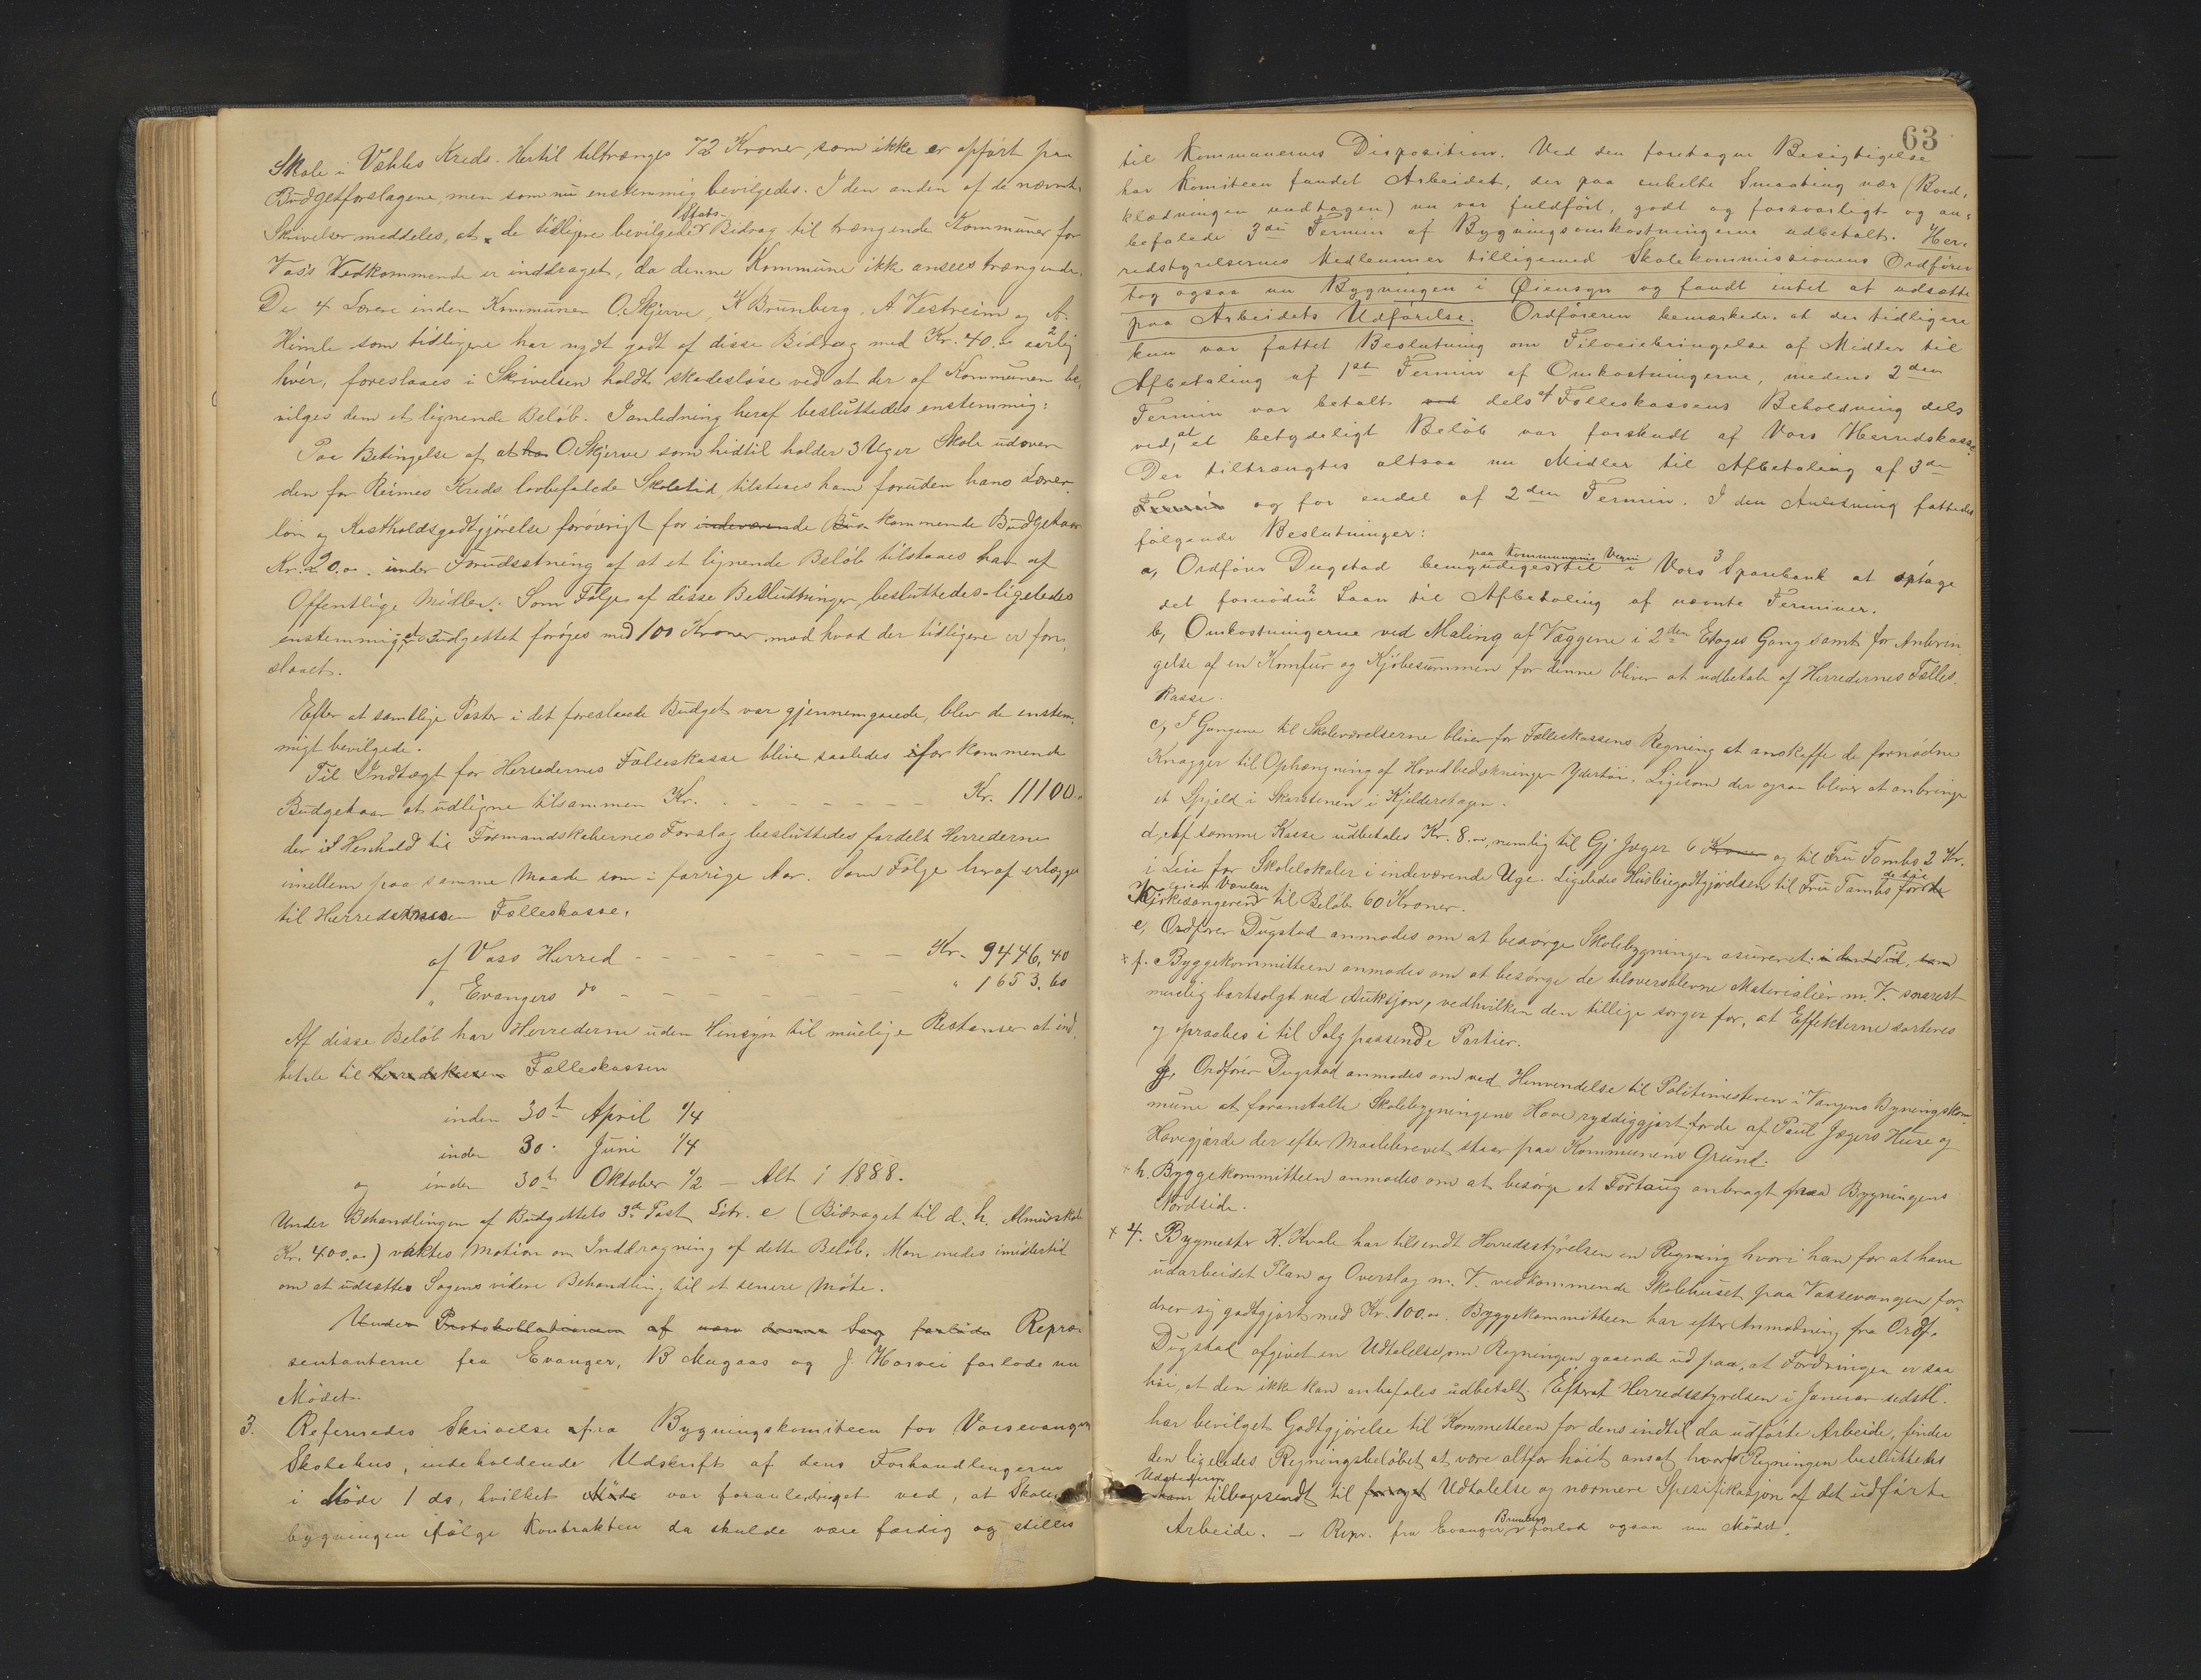 Skole i Vætles Kreds. Hertil tiltrænges 72 Kroner, som ikke er opført paa
Budgetforslagene, men som nu enstemmig bevilgedes. I den anden af de nævnte
Skrivelser meddeles, at de tidligere bevilgede Stats-Bidrag til trængende Kommuner for
Voss's Vedkommende er inddraget, da denne Kommune ikk ansees trængende.
De 4 Lærere inden Kommunen O. Skjerve, K Brunberg, A. Vestreim og A.
Himle som tidligere har nydt godt af disse Bidrag med Kr. 40.00 aarlig
hver, foreslaaes i Skrivelsen holdt skadesløse ved at der af Kommunen be-
vilges dem et lignende Beløb. I anledning heraf besluttedes enstemmig:
Paa Betingelse af at O. Skjerve som hidtil holder 3 Uger Skole udover
den for Reimes Kreds lovbefalede Skoletid, tilstaaes ham foruden hans Lærer-
løn og Kostholdsgodtgjørelse forøvrigt for indeværende kommende Budgetaar
Kr. 20.00. under Forudsætning af at et lignende Beløb tilstaaes ham af
Offentlige Midler. Som Følge af disse Beslutninger, besluttedes ligeledes
enstemmig, at Budgettet forøges med 100 Kroner mod hvad der tidligere er fore-
slaaet.
Efter at samtlige Poster i det foreslaaede Budget var gjennemgaaede, blev de enstem-
migt bevilgede.
Til Indtægt for Herredernes Fælleskasse bliver saaledes for kommende
Budgetaar at udligne tilsammen Kr. - - - - - - - Kr. 11100.00
der i Henhold til Formandskabernes Forslag besluttedes fordelt Herrederne
imellem paa samme Maade som i forrige Aar. Som Følge heraf erlægges
til Herredernes Fælleskasse,
af Voss Herred - - - - - - - - Kr. 9446,40
" Evangers do - - - - - - - " 1653.60
Af disse Beløb har Herrederne uden Hinsyn til mulige Restanser at ind-
betale til Herredskassen Fælleskassen
inden 30te April 1/4
inden 30. Juni 1/4
og inden 30te Oktober 1/2 - Alt i 1888.
Under Behandlingen af Budgettets 3die Post Litr. e (Bidraget til d. h. Almueskole
Kr. 400.00) vaktes Motion om Inddragning af dette Beløb. Man enedes imidlertid
om at udsætte Sagens videre Behandling til et senere Møte.
Under Protokollationen af denne Sag forlode Repræ-
sentanterne fra Evanger, B Mugaas og J. Horvei forlode nu
Mødet.
3. Refereredes Skrivelse fra Bygningskomiteen for Vossevangens
Skolehus, indeholdende Udskrift af dens Forhandlingerne
i Møde 1 ds, hvilket Møde var foranlediget ved, at Skole-
bygningen ifølge Kontrakten da skulde være færdig og stilles
63
til Kommunernes Disposition. Ved den foretagne Besigtigelse
har Komiteen fundet Arbeidet, der paa enkelte Smaating nær (Bord-
klædningen undtagen) nu var fuldført, godt og forsvarligt og an-
befalede 3die Termin af Bygningsomkostningerne udbetalt. Her-
redstyrelsernes Medlemmer tilligemed Skolekommissionens Ordfører
tog ogsaa nu Bygningen i Øiensyn og fandt intet at udsætte
paa Arbeidets Udførelse. Ordføreren bemærkede, at der tidligere
kun var fattet Beslutning om Tilveiebringelse af Midler til
Afbetaling af 1ste Termin af Omkostningerne, medens 2den
Termin var betalt ved dels af Fælleskassens Beholdning dels
ved, at et betydeligt Beløb var forskudt af Voss Herredskasse.
Der tiltrængtes altsaa nu Midler til Afbetaling af 3die
Termin og for endel af 2den Termin. I den Anledning fattedes
følgende Beslutninger:
a, Ordfører Dugstad bemyndiges til paa Kommunernes Vegne i Voss Sparebank at optage
det fornødne Laan til Afbetaling af nævnte Terminer.
b, Omkostningerne ved Maling af Væggene i 2den Etages Gang samt for Anbrin-
gelse af en Komfur og Kjøbesummen for denne bliver at udbetale af Herredernes Fælles-
kasse.
c, I Gangene til Skoleværelserne bliver for Fælleskassens Regning at anskaffe de fornødne
Knagger til Ophængning af Hovedbedækninger Ydertøi, Ligesom der ogsaa bliver at anbringe
et Spjeld i Skorstenen i Kjelderetagen.
d, Af samme Kasse udbetales Kr. 8.00, nemlig til Gj. Jæger 6 Kroner og til Fru Tambs 2 Kr.
i Leie for Skolelokaler i indeværende Uge. Ligeledes Husleiegodtgjørelsen til Fru Tambs for
Kirkesangeren til Beløb 60 Kroner.
e, Ordfører Dugstad anmodes om at besørge Skolebygningen assureret. i den Tid, som
x f. Byggekommitteen anmodes om at besørge de tiloversblevne Materialier m. V. snarest
muelig bortsolgt ved Auksjon, vedhvilken den tillige sørger for, at Effekterne sorteres
og opraabes i til Salg passende Partier.
g, Ordfører Dugstad anmodes om ved Henvendelse til Politimesteren i Vangens Bygningskom-
mune at foranstalte Skolebygningens Have ryddiggjort for de af Paul Jægers Huse og
Havegjærde der efter Maalebrevet staar paa Kommunens Grund.
x h. Byggekommitteen anmodes om at besørge et Fortaug anbragt paa Bygningens
Nordside.
x 4. Bygmester K. Kvale har tilsendt Herredsstyrelsen en Regning hvori han for at have
udarbeidet Plan og Overslag m. V. vedkommende Skolehuset paa Vossevangen for-
drer sig godtgjort med Kr. 100.00. Byggekommitteen har efter Anmodning fra Ordf.
Dugstad afgivet en Udtalelse om Regningen, gaaende ud paa, at Fordringen er saa
høi, at den ikke kan anbefales udbetalt. Efterat Herredsstyrelsen i Januar sidstl.
har bevilget Godtgjørelse til Kommetteen for dens indtil da udførte Arbeide, finder
den ligeledes Regningsbeløbet at være altfor høit ansat, hvorfor Regningen besluttedes
Udstederen tilbagesendt til Udtalelse og nærmere Spesifikasjon af det udførte
Arbeide. - Repr. fra Evanger Brunborg forlod ogsaa nu Mødet.